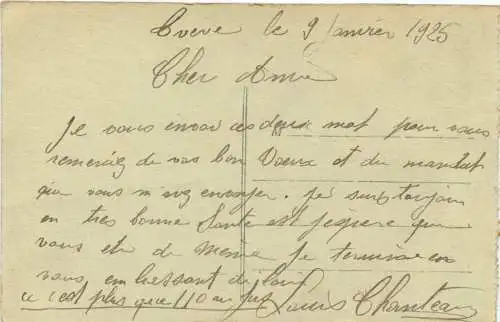 le 9 Janvier 1925
Cher Amis
Je vous envoi ces deux mot pour vous
remerciez de vos bon Voeux et du mandat
que vous m'avez envoyer. Je suis toujour
en tres bonne Sante est j'espere que
vous ete de meme je termine en
vous embrassant de loin
ce c'est plus que 110 au jus Louis Chanteau